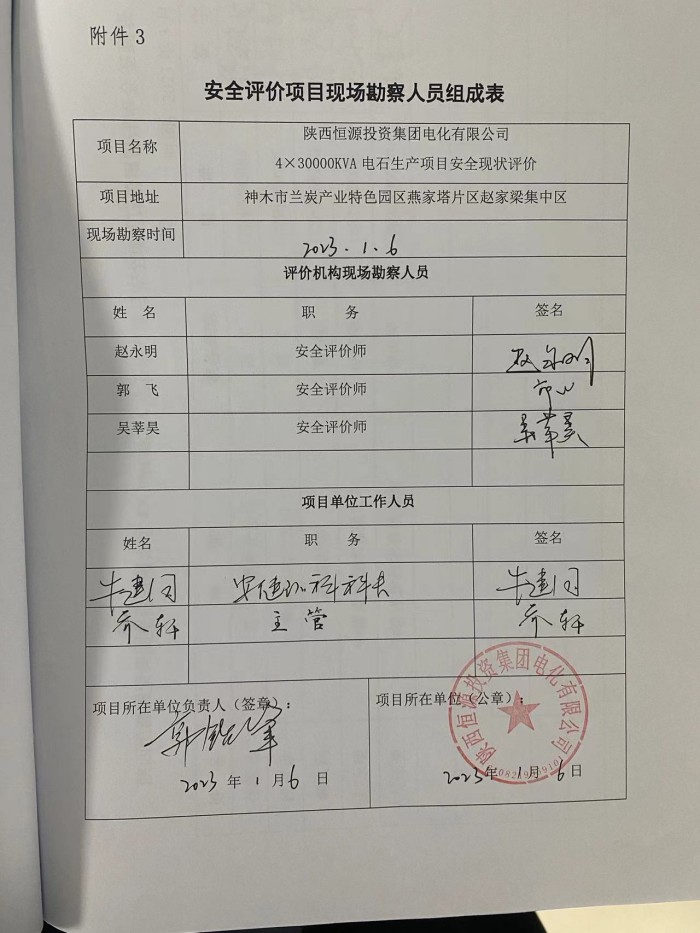 附件 3
安全评价项目现场勘察人员组成表
项目名称
陕西恒源投资集团电化有限公司
4×30000KVA 电石生产项目安全现状评价
项目地址 神木市兰炭产业特色园区燕家塔片区赵家梁集中区
现场勘察时间 2023.1.6
评价机构现场勘察人员
姓 名 职 务 签名
赵永明 安全评价师 赵永明
郭 飞 安全评价师
吴莘昊 安全评价师 吴莘昊
项目单位工作人员
姓名 职 务 签名
牛建 安健环科科长 牛建
乔轩 主管 乔轩
项目所在单位负责人（签章）：
2023 年 1 月 6 日
项目所在单位（公章）：
陕西恒源投资集团电化有限公司
2023 年 1 月 6 日